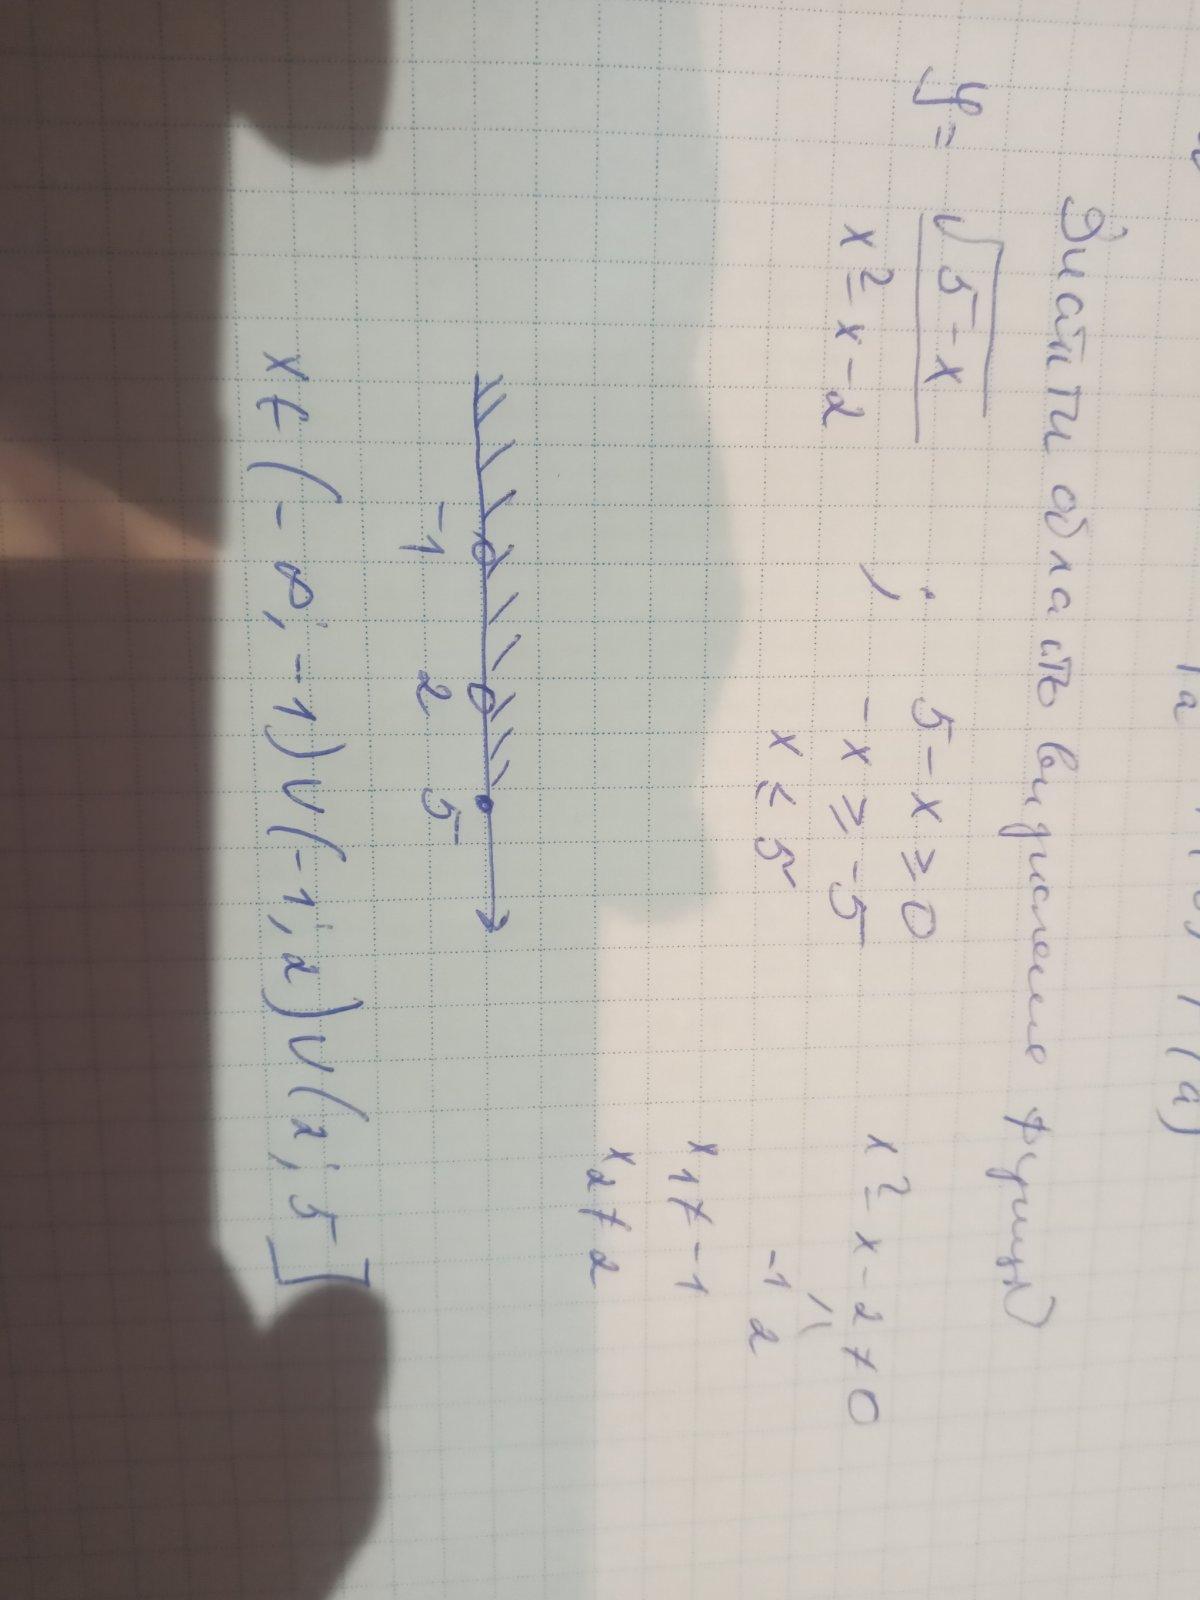 Знайти область визначення функції
y = √5-x / x²-x-2 ; 5-x ≥ 0 x²-x-2 ≠ 0
-x ≥ -5 -1 2
x ≤ 5 x₁ ≠ -1
x₂ ≠ 2
-1 2 5
x ∈ (-∞; -1) ∪ (-1; 2) ∪ (2; 5]